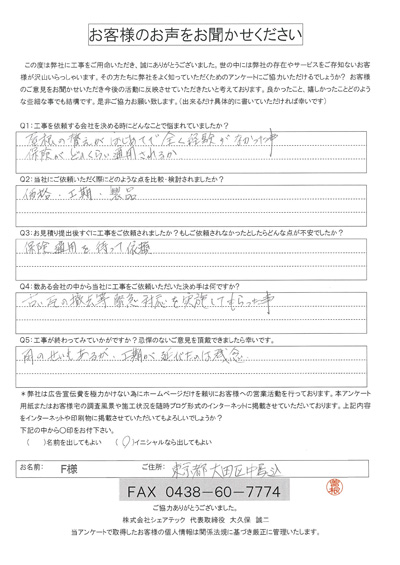 お客様のお声をお聞かせください
この度は弊社に工事をご用命いただき、誠にありがとうございました。世の中には弊社の存在やサービスをご存知ないお客
様が沢山いらっしゃいます。その方たちに弊社をよく知っていただくためのアンケートにご協力いただけるでしょうか？ お客様
のご意見をお聞かせいただき今後の活動に反映させていただきたいと考えております。良かったこと、嬉しかったことどのよう
な些細な事でも結構です。是非ご協力お願い致します。（出来るだけ具体的に書いていただければ幸いです）
Q1：工事を依頼する会社を決める時にどんなことで悩まれていましたか？
屋根の葺替えがはじめてで全く経験がなかった事
保険がどれくらい適用されるか
Q2：当社にご依頼いただく際にどのような点を比較・検討されましたか？
価格・工期・製品
Q3：お見積り提出後すぐに工事をご依頼されましたか？もしご依頼されなかったとしたらどんな点が不安でしたか？
保険適用を待って依頼
Q4：数ある会社の中から当社に工事をご依頼いただいた決め手は何ですか？
古い瓦の撤去等緊急対応を実施してもらった事
Q5：工事が終わってみていかがですか？忌憚のないご意見を頂戴できましたら幸いです。
雨のせいもあるが、工期が延びたのは残念
＊弊社は広告宣伝費を極力かけない為にホームページだけを頼りにお客様への営業活動を行っております。本アンケート
用紙またはお客様宅の調査風景や施工状況を随時ブログ形式のインターネットに掲載させていただいております。上記内容
をインターネットや印刷物に掲載させていただいてもよろしいでしょうか？
下記の中から〇印をお付下さい。
（ ）名前を出してもよい （〇）イニシャルなら出してもよい
お名前： F様 ご住所： 東京都大田区中馬込
FAX 0438-60-7774
ご協力ありがとうございました。
株式会社シェアテック 代表取締役 大久保 誠二
当アンケートで取得したお客様の個人情報は関係法規に基づき厳正に管理いたします。